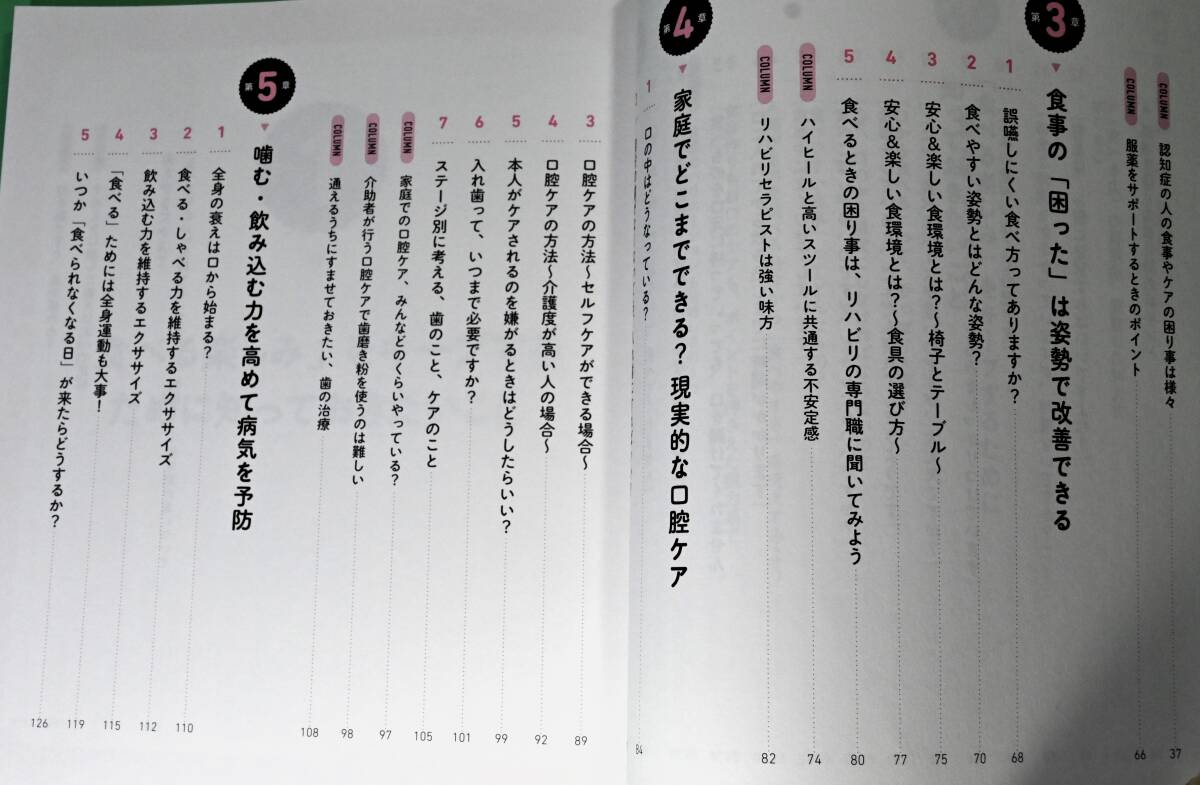 COLUMN 認知症の人の食事やケアの困り事は様々 37
COLUMN 服薬をサポートするときのポイント 66
第3章 ▼ 食事の「困った」は姿勢で改善できる
1 誤嚥しにくい食べ方ってありますか? 68
2 食べやすい姿勢とはどんな姿勢? 70
3 安心&楽しい食環境とは?〜椅子とテーブル〜 75
4 安心&楽しい食環境とは?〜食具の選び方〜 77
5 食べるときの困り事は、リハビリの専門職に聞いてみよう 80
COLUMN ハイヒールと高いスツールに共通する不安定感 74
COLUMN リハビリセラピストは強い味方 82
第4章 ▼ 家庭でどこまでできる? 現実的な口腔ケア
1 口の中はどうなっている? 84
3 口腔ケアの方法〜セルフケアができる場合〜 89
4 口腔ケアの方法〜介護度が高い人の場合〜 92
5 本人がケアされるのを嫌がるときはどうしたらいい? 99
6 入れ歯って、いつまで必要ですか? 101
7 ステージ別に考える、歯のこと、ケアのこと 105
COLUMN 家庭での口腔ケア、みんなどのくらいやっている? 97
COLUMN 介助者が行う口腔ケアで歯磨き粉を使うのは難しい 98
COLUMN 通えるうちにすませておきたい、歯の治療 108
第5章 ▼ 噛む・飲み込む力を高めて病気を予防
1 全身の衰えは口から始まる? 110
2 食べる・しゃべる力を維持するエクササイズ 112
3 飲み込む力を維持するエクササイズ 115
4 「食べる」ためには全身運動も大事! 119
5 いつか「食べられなくなる日」が来たらどうするか? 126